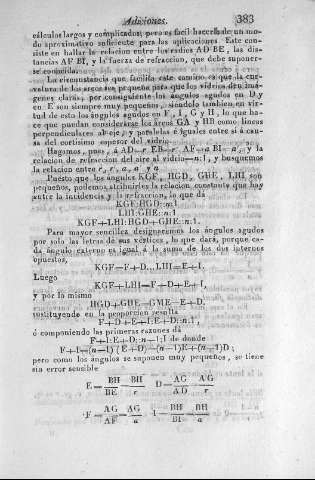 Adiciones. 383
cálculos largos y complicados, pero es facil hacerlo de un mo-
do aproximativo suficiente para las aplicaciones. Este con-
siste en hallar la relacion entre los radios AD BE, las dis-
tancias AF BI, y la fuerza de refraccion, que debe suponer-
se conocida.
La circunstancia que facilita este camino es que la cur-
vatura de los arcos sea pequeña para que los vidrios den imá-
genes claras, por consiguiente los ángulos agudos en D y
en E son siempre muy pequeños, siéndolo tambien en vir-
tud de esto los ángulos agudos en F, I, G y H, lo que ha-
ce que puedan considerarse los arcos GA y HB como líneas
perpendiculares al eje, y paralelas é iguales entre sí á cau-
sa del cortísimo espesor del vidrio.
Hagamos, pues, á AD=r EB=r' AF=a BI=a', y la
relacion de refraccion del aire al vidrio=n:1, y busquemos
la relacion entre r, r', a, a' y n.
Puesto que los ángulos KGF, HGD, GHE, LHI son
pequeños, podemos atribuirles la relacion constante que hay
entre la incidencia y la refraccion, lo que dá
KGF:HGD::n:1
LHI:GHE::n:1
KGF+LHI:HGD+GHE::n:1.
Para mayor sencillez designaremos los ángulos agudos
por solo las letras de sus vértices, lo que dará, porque ca-
da ángulo externo es igual á la suma de los dos internos
opuestos,
KGF=F+D...LHI=E+I.
Luego
KGF+LHI=F+D+E+I,
y por lo mismo
HGD+GHE=GME=E+D.
sustituyendo en la proporcion resulta
F+D+E+I:E+D::n:1,
ó componiendo las primeras razones dá
F+I:E+D::n-1:1 de donde
F+I=(n-1)(E+D)=(n-1)E+(n-1)D;
pero como los ángulos se suponen muy pequeños, se tiene
sin error sensible
E=BH/BE=BH/r' D=AG/AD=AG/r
F=AG/AF=AG/a I=BH/BI=BH/a'